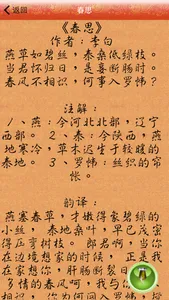 返回
春思
《春思》
作者：李白
燕草如碧丝，秦桑低绿枝。
当君怀归日，是妾断肠时。
春风不相识，何事入罗帏？
注解：
1、燕：今河北北部，辽宁
西部。 2、秦：今陕西，燕
地寒冷，草木迟生于较暖的
秦地。 3、罗帏：丝织的帘
帐。
韵译：
燕塞春草，才嫩得象碧绿的
小丝， 秦地桑叶，早已茂密
得压弯树枝。 郎君啊，当你
在边境想家的时候， 正是我
在家想你，肝肠断裂日